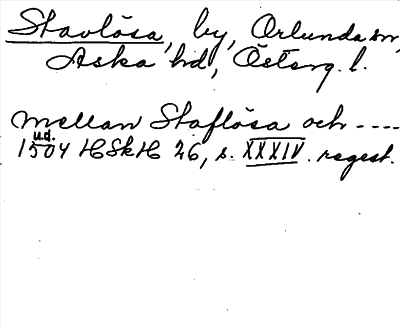 Stavlösa, by, Orlunda sn,
Aska hd, Österg. l.
mellan Staflösa och ----
u.d.
1504 HSkH 26, s. XXXIV. regest.